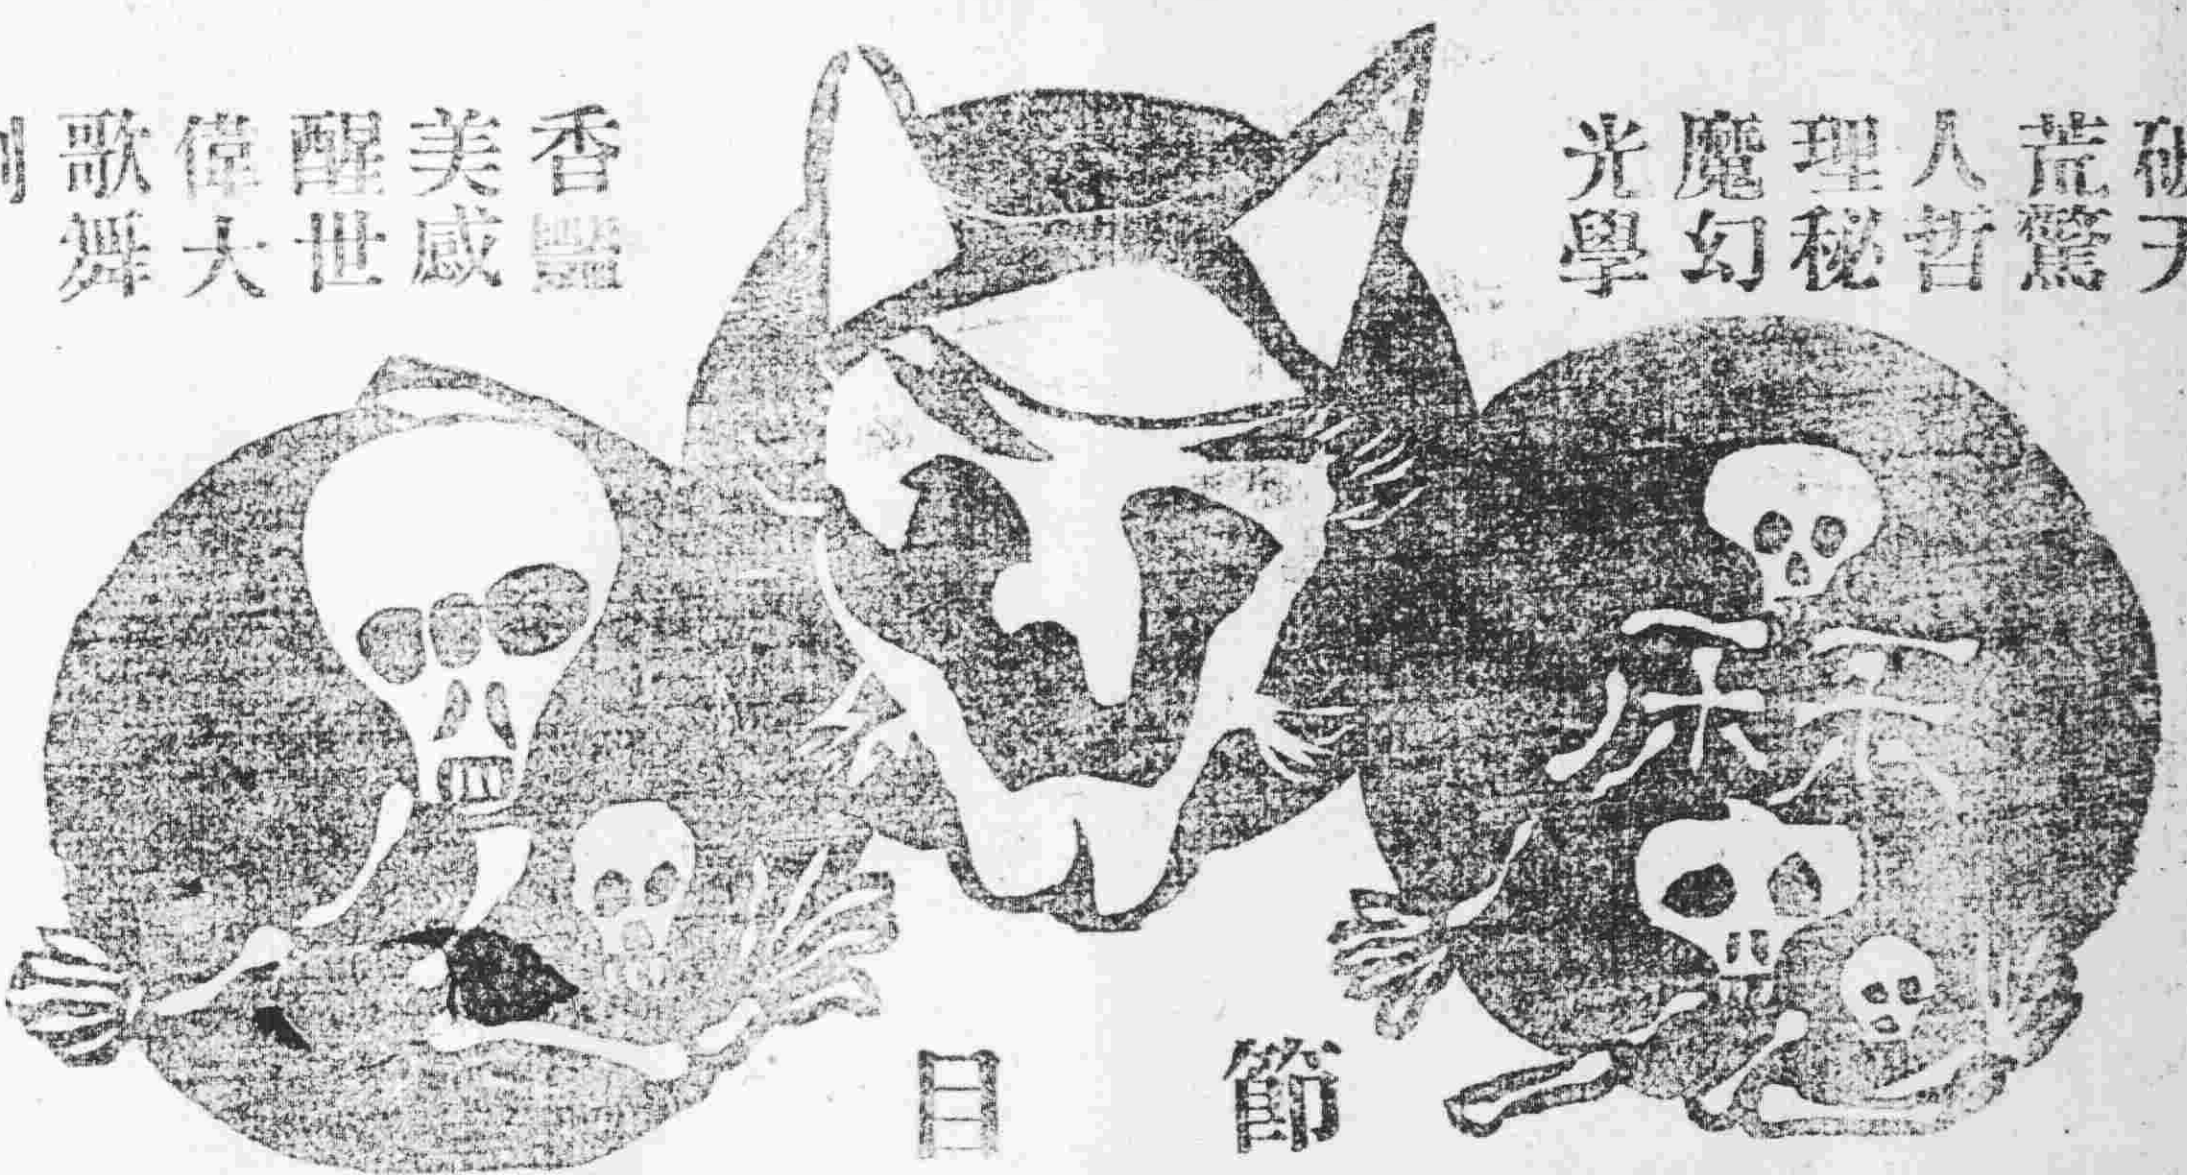 荒驚
人哲
理秘
魔幻
光學
香豔
美感
醒世
偉大
歌舞
節目